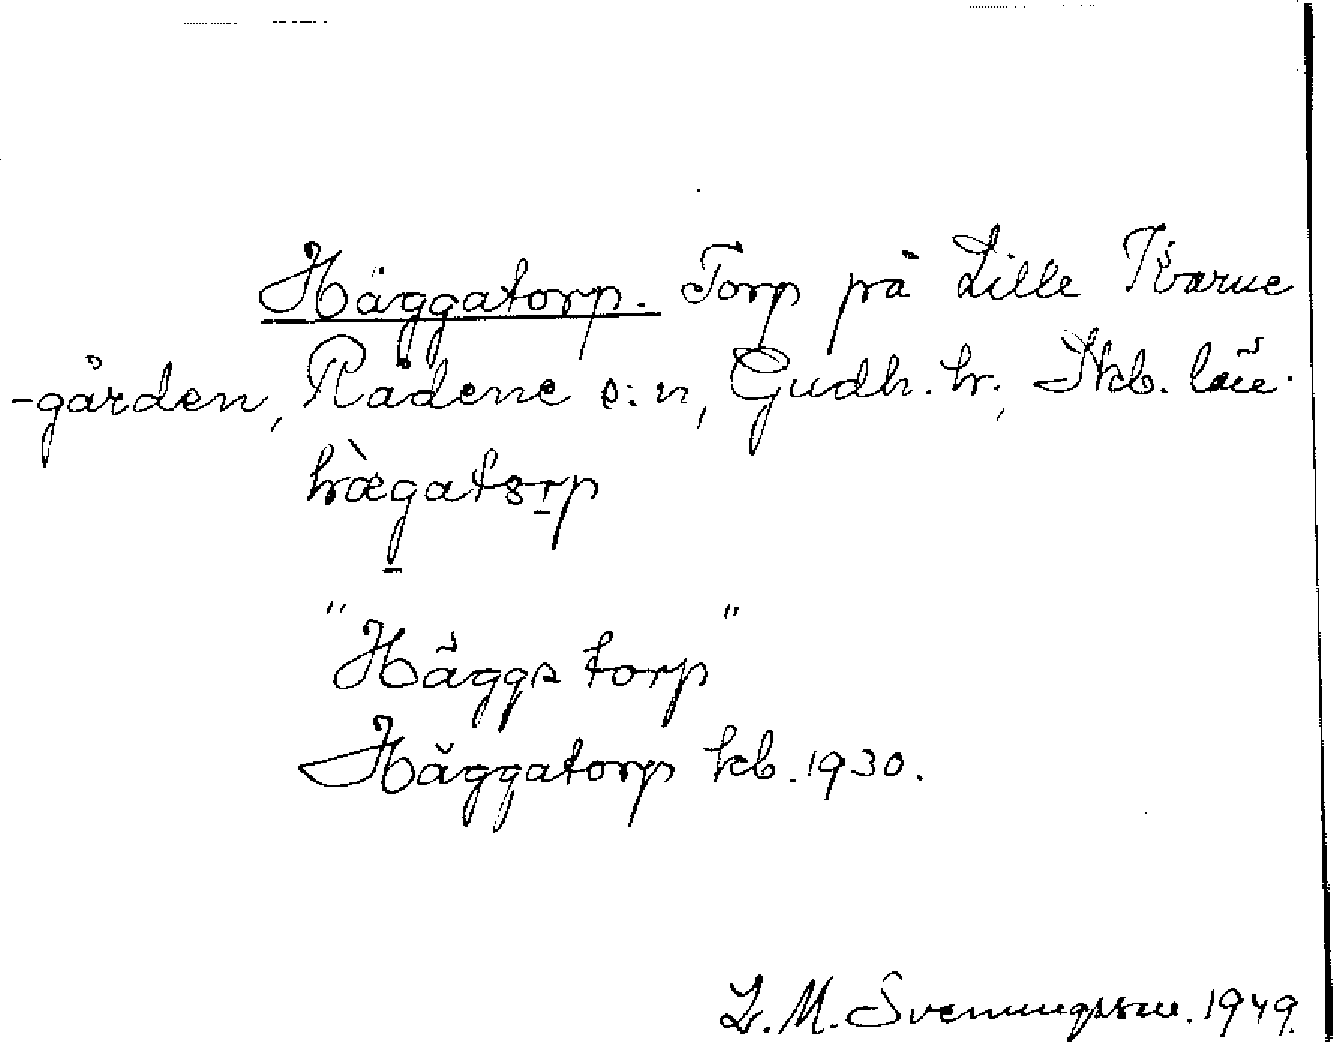 Häggatorp. Torp på Lille Kvarne
-gården, Rådene s:n, Gudh. h., Skb. län.
hægatorp
"Häggs torp"
Häggatorp kb. 1930.
L. M. Svenungsson. 1949.